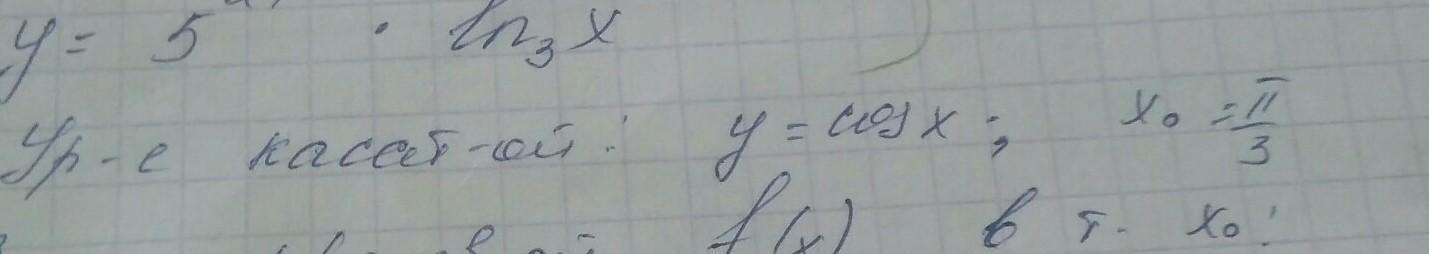 y = 5 · ln₃x
Ур-е касат-ой: y = cos x; x₀ = π/3
f(x) в т. x₀: